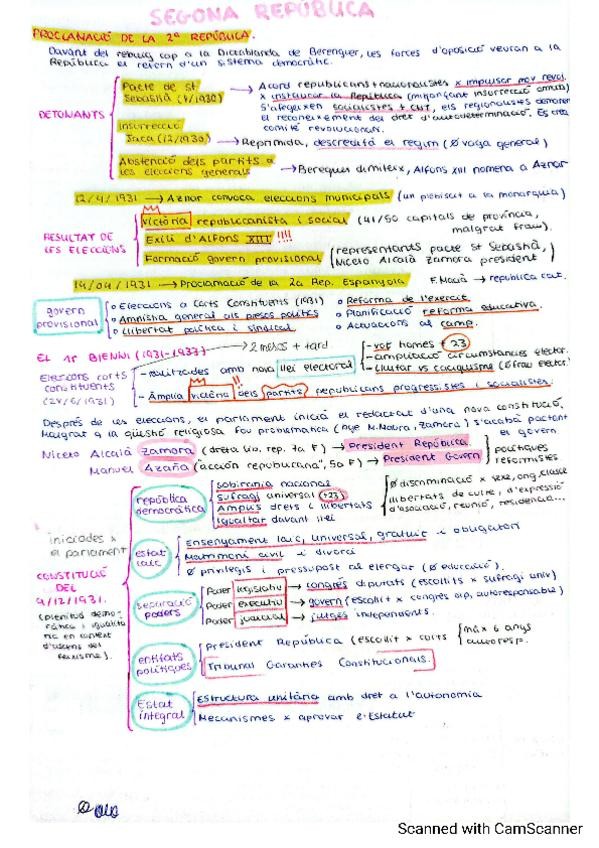 SEGONA REPÚBLICA
PROCLAMACIÓ DE LA 2ª REPÚBLICA.
Davant del rebuig cap a la Dictablanda de Berenguer, les forces d'oposició veuran a la
República el retorn d'un sistema democràtic.
DETONANTS
Pacte de st Sebastià (8/1930)
→ Acord republicans + nacionalistes x impulsar mov revol.
x instaurar la República (mitjançant insurrecció armada)
S'afegeixen socialistes + CNT, els regionalistes demanen
el reconeixement del dret d'autodeterminació. Es crea
comitè revolucionari.
Insurrecció Jaca (12/1930)
→ Reprimida, descredità el règim (Ø vaga general)
Abstenció dels partits a les eleccions generals
→ Berenguer dimiteix, Alfons XIII nomena a Aznar
12/4/1931 → Aznar convoca eleccions municipals (un plebiscit a la monarquia)
RESULTAT DE LES ELECCIONS
Victòria republicanista i social (41/50 capitals de província,
malgrat frau).
Exili d'Alfons XIII !!!!
Formació govern provisional (representants pacte st Sebastià,
Niceto Alcalà Zamora president)
14/04/1931 → Proclamació de la 2a Rep. Espanyola F. Macià → república cat.
govern provisional
o Eleccions a Corts Constituents (1931)
o Amnistia general als presos polítics
o llibertat política i sindical
o Reforma de l'exèrcit
o Planificació reforma educativa.
o Actuacions al camp.
EL 1r BIENNI (1931-1933)
→ 2 mesos + tard
Eleccions corts constituents (28/6/1931)
- realitzades amb nova llei electoral
- vot homes + 23
- ampliació circumstàncies elector.
- lluitar vs caciquisme (Ø frau elector.)
- Àmplia victòria dels partits republicans progressistes i socialistes.
Després de les eleccions, el parlament inicià el redactat d'una nova constitució,
Malgrat q la qüestió religiosa fou problemàtica (oye M. Maura, Zamora) s'acabà pactant
el govern
Niceto Alcalà Zamora (dreta lib. rep. 7a F) → President República.
Manuel Azaña ("acción republicana", 5a F) → President Govern
polítiques reformistes
iniciades x el parlament
CONSTITUCIÓ DEL 9/12/1931.
república democràtica
sobirania nacional
sufragi universal (+23)
Amplis drets i llibertats
igualtat davant llei
Ø discriminació x sexe, ong, classe
llibertats de culte, d'expressió
d'associació, reunió, residència...
Estat laic
Ensenyament laic, universal, gratuït i obligatori
Matrimoni civil i divorci
Ø privilegis i pressupost al clergat (Ø educació).
separació poders
Poder legislatiu → congrés diputats (escollits x sufragi univ)
Poder executiu → govern (escollit x congrés dip, autoresponsable)
Poder judicial → jutges independents.
entitats polítiques
President República (escollit x corts
màx 6 anys
autoresp.
Tribunal Garanties Constitucionals.
Estat integral
Estructura unitària amb dret a l'autonomia
Mecanismes x aprovar e. Estatut
Scanned with CamScanner